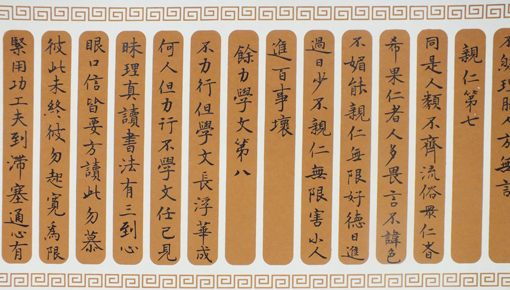 不然理服人方無言
親仁第七
同是人類不齊流俗眾仁者
希果仁者人多畏言不諱色
不媚能親仁無限好德日進
過日少不親仁無限害小人
進百事壞
餘力學文第八
不力行但學文長浮華成
何人但力行不學文任己見
昧理真讀書法有三到心
眼口信皆要方讀此勿慕
彼此未終彼勿起寬為限
緊用功工夫到滯塞通心有